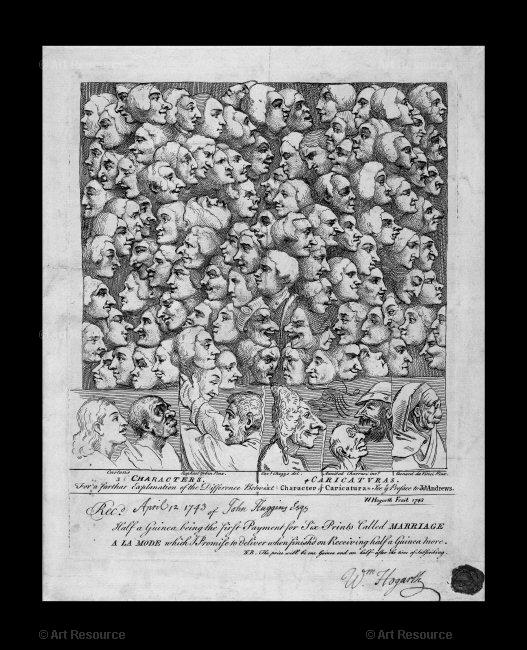 © Art Resource © Art Resource
© Art Resource © Art Resource
© Art Resource © Art Resource
Cartons Raphael Urbin Pinx. Cavr. Chezze del. Annibal Charraci inv. Leonard da Vinci Pinx.
3: CHARACTERS. 4 CARICATURAS.
For a farthar Explanation of the Difference Betwixt Character & Caricatura See ye Preface to Joh Andrews.
W Hogarth Fecit 1743
Rec'd April 12 1743 of John Huggins Esqr
Half a Guinea being the first Payment for Six Prints Called MARRIAGE
A LA MODE which I Promise to deliver when finish'd on Receiving half a Guinea more.
N.B. The price will be one Guinea and an half after the time of Subscribing.
Wm Hogarth
© Art Resource © Art Resource